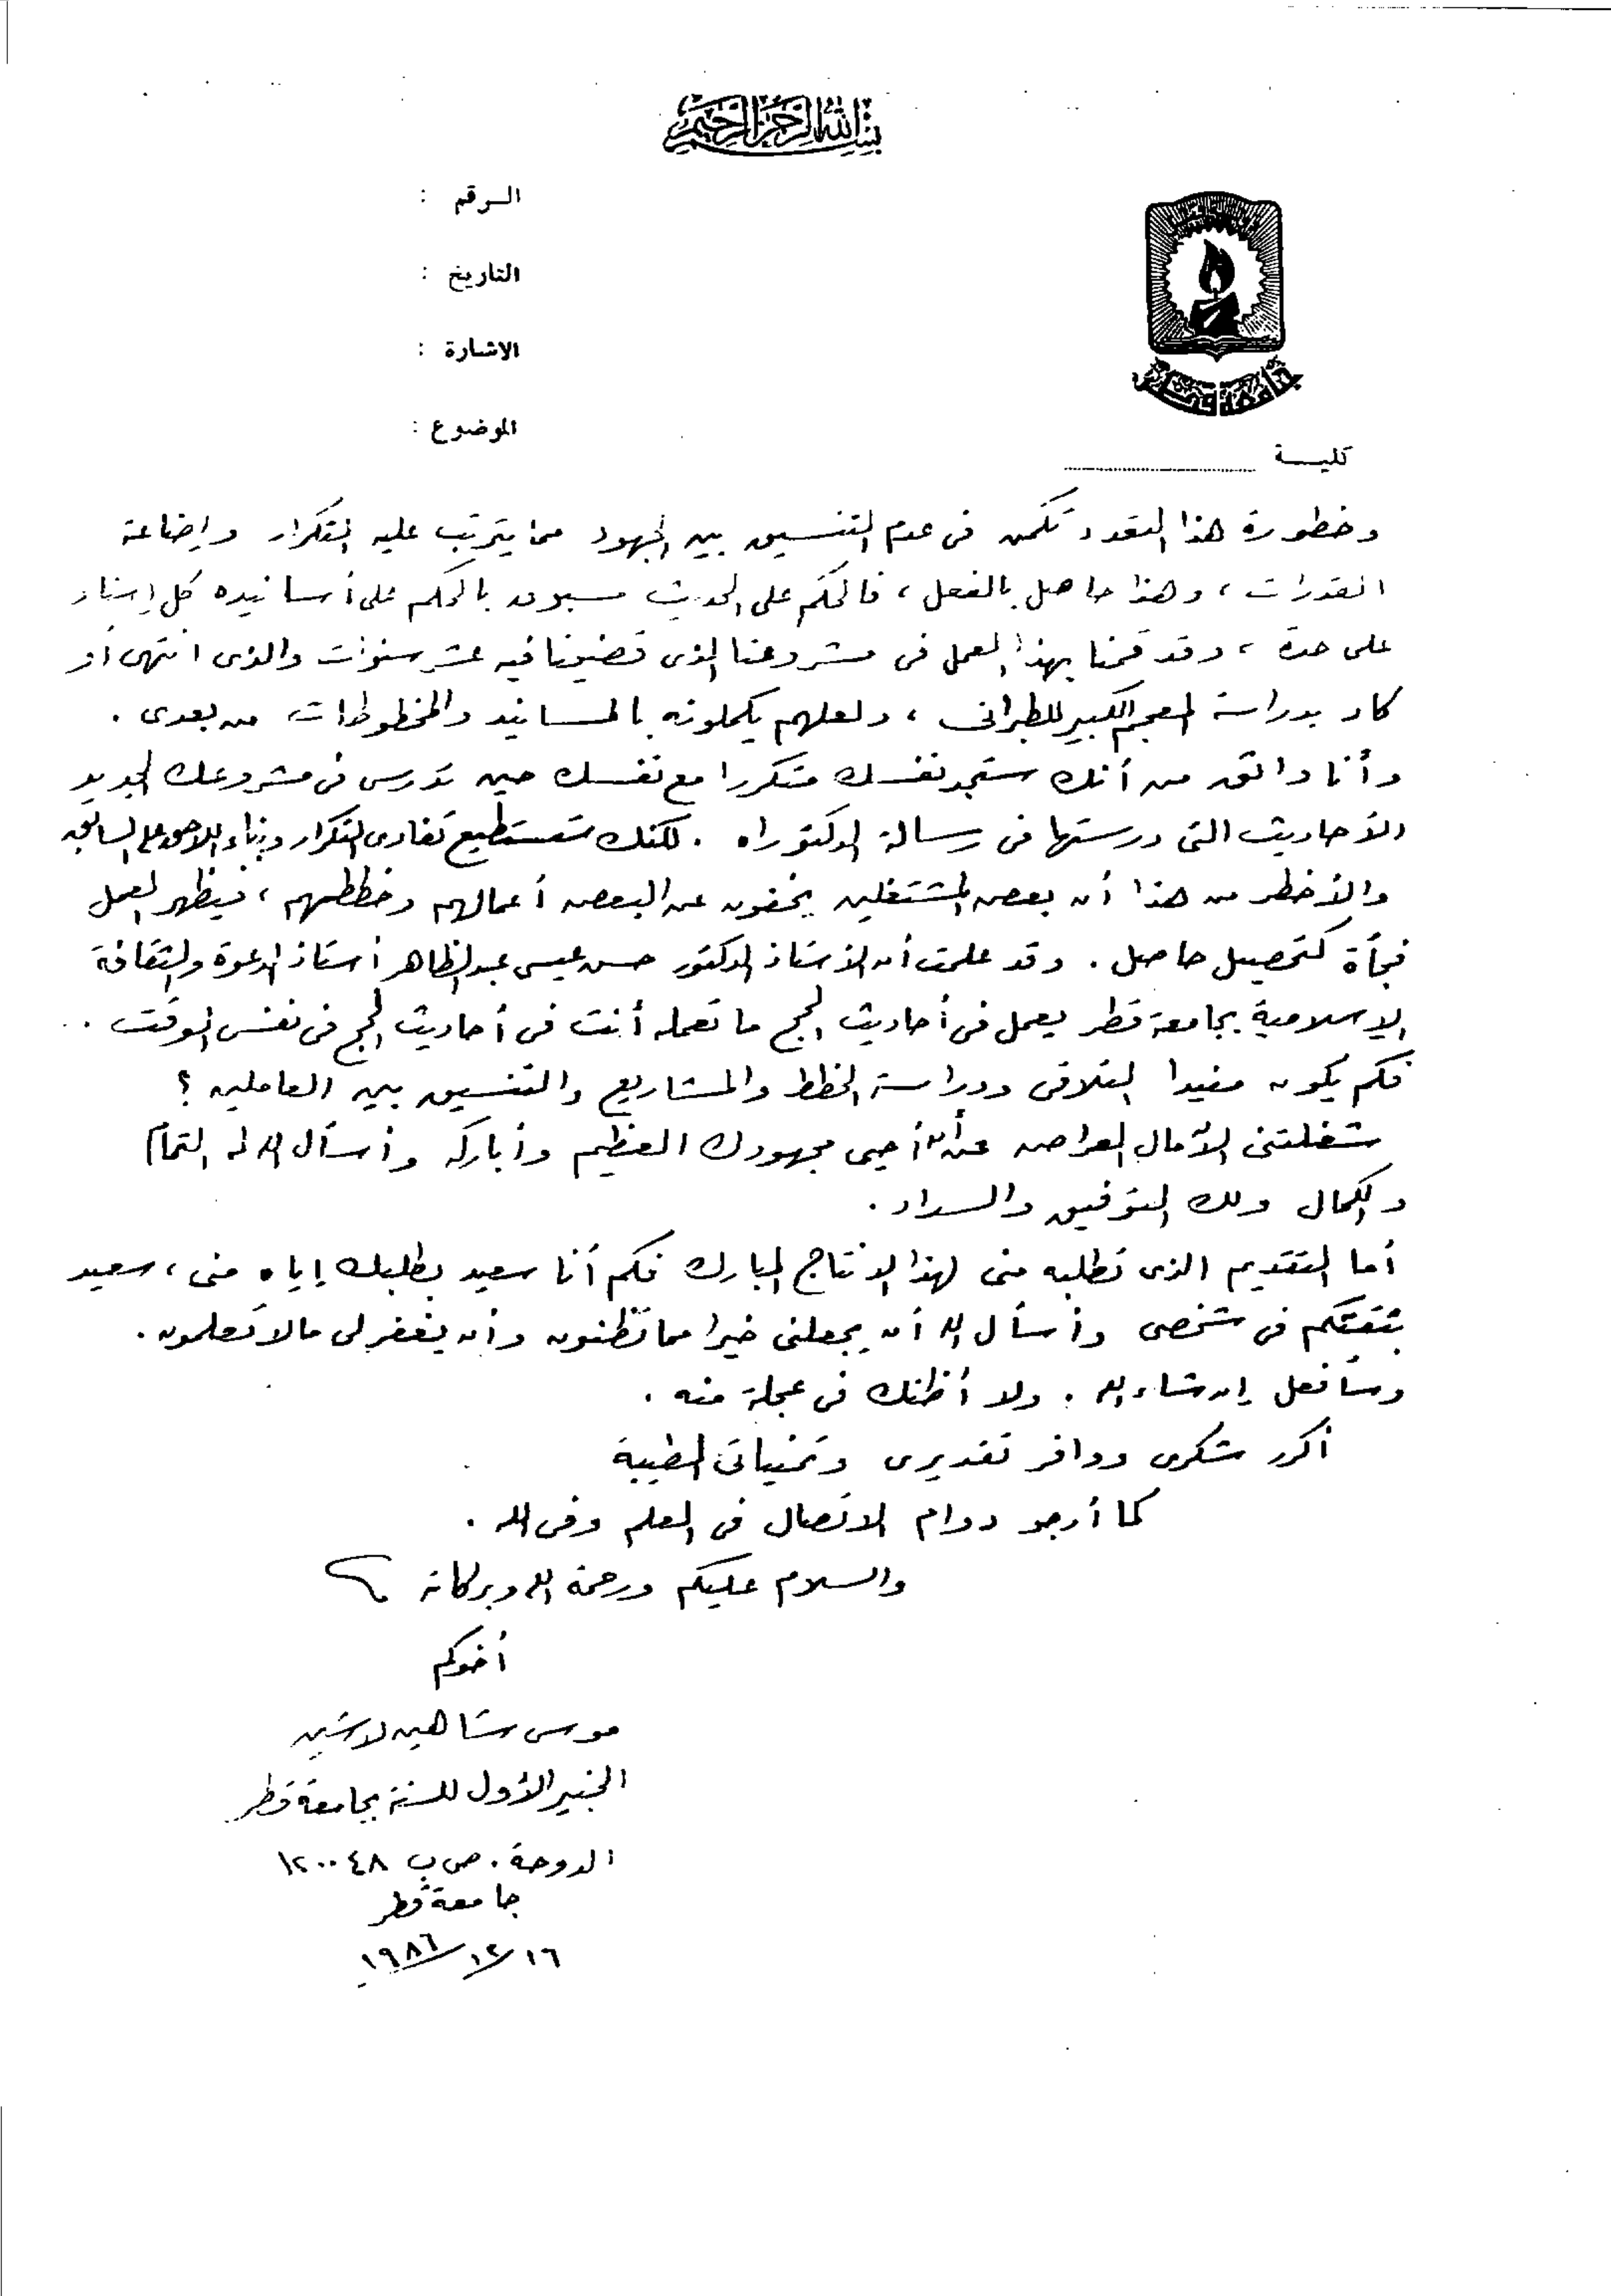 بسم الله الرحمن الرحيم
الرقم :
التاريخ :
الاشارة :
الموضوع :
جامعة قطر
كلية
وخطورة هذا التعدد تكمن فى عدم التنسيق بين الجهود مما يترتب عليه التكرار وإضاعة
القدرات ، وهذا حاصل بالفعل ، فالحكم على الحديث مسبوق بالحكم على أسانيده كل إسناد
على حدة ، وقد قمنا بهذا العمل فى مشروعنا الذى قضينا فيه عشر سنوات والذى انتهى أو
كاد بدراسة المعجم الكبير للطبرانى ، ولعلهم يكملونه بالمسانيد والمخطوطات من بعدى .
وأنا واثق من أنك ستجد نفسك متكررا مع نفسك حين تدرس فى مشروعك الجديد
الأحاديث التى درستها فى رسالة الدكتوراه . لكنك ستستطيع تفادى التكرار وبناء اللاحق على السابق
والأخطر من هذا أن بعض المشتغلين يخفون عن البعض أعمالهم وخططهم ، فيظهر العمل
فجأة كتحصيل حاصل . وقد علمت أن الأستاذ الدكتور حسن عيسى عبد الظاهر أستاذ الدعوة والثقافة
الإسلامية بجامعة قطر يعمل فى أحاديث الحج ما تعمله أنت فى أحاديث الحج فى نفس الوقت .
فكم يكون مفيدا التلاقى ودراسة الخطط والمشاريع والتنسيق بين العاملين ؟
شغلتنى الآمال العراض عن أن أحيى مجهودك العظيم وأباركه وأسأل الله له التمام
والكمال ولك التوفيق والسداد .
أما التقديم الذى تطلبه منى لهذا الإنتاج المبارك فكم أنا سعيد بطلبك إياه منى ، سعيد
بثقتكم فى شخصى وأسأل الله أن يجعلنى خيرا مما تظنون وأن يغفر لى مالا تعلمون .
وسأفعل إن شاء الله . ولا أظنك فى عجلة منه .
أكرر شكرى ووافر تقديرى وتمنياتى الطيبة
كما أرجو دوام الاتصال فى العلم وفى الله .
والسلام عليكم ورحمة الله وبركاته
أخوكم
موسى شاهين لاشين
الخبير الأول للسنة بجامعة قطر
الدوحة . ص ب ١٢٠٠٤٨
جامعة قطر
١٦/١٢/١٩٨٦